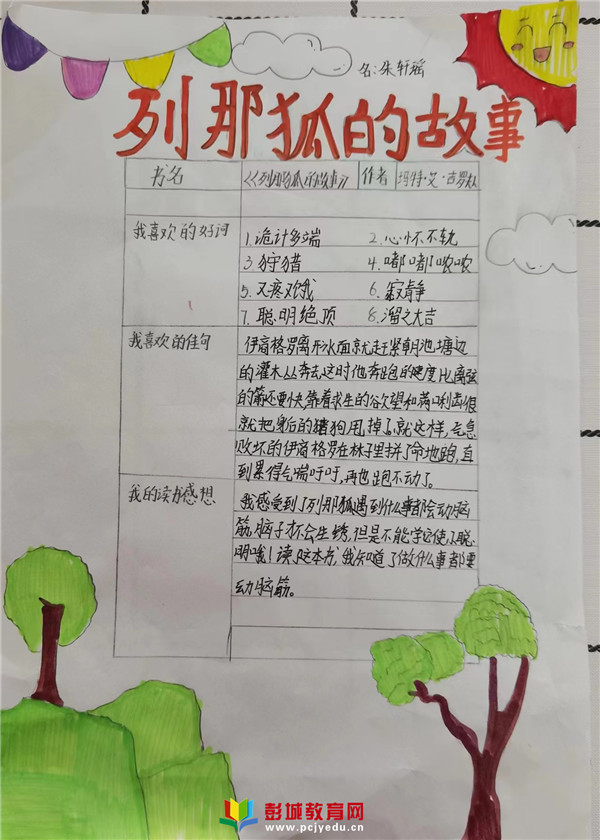 名:朱轩瑶
列那狐的故事
书名 《列那狐的故事》 作者 玛特·艾·吉罗夫人
我喜欢的好词
1.诡计多端 2.心怀不轨
3.狩猎 4.嘟嘟哝哝
5.又疼又饿 6.寂静
7.聪明绝顶 8.溜之大吉
我喜欢的佳句
伊商格罗离形水面就赶紧朝池塘边
的灌木丛奔去,这时他奔跑的速度比离弦
的箭还要快,靠着求生的欲望和满口利齿很
就把身后的猪狗甩掉了。就这样,气急
败坏的伊商格罗在林子里拼了命地跑,直
到累得气喘吁吁,再也跑不动了。
我的读书感想
我感受到了列那狐遇到什么事都会动脑
筋,脑子才不会生锈,但是不能学这使不聪
明哦!读这本书,我知道了做什么事都要
动脑筋。
彭城教育网
www.pcjyedu.cn